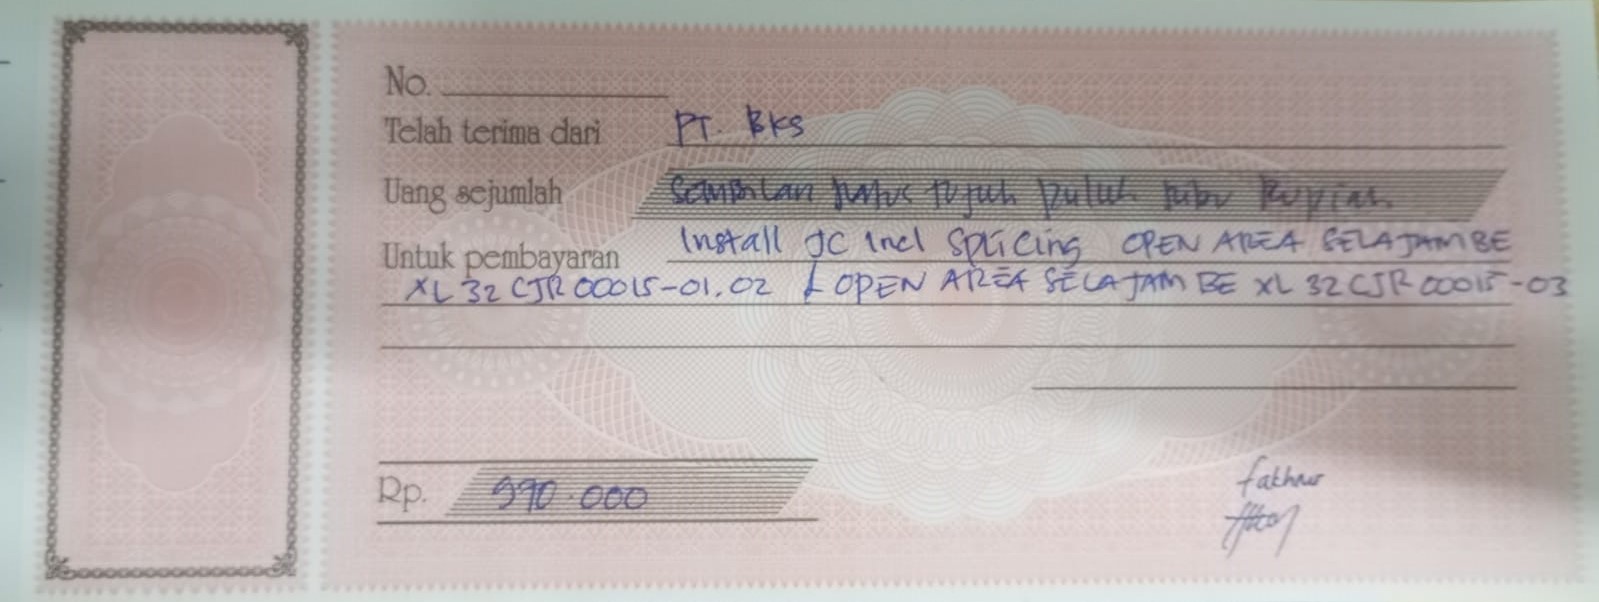 No.
Telah terima dari PT. BKS
Uang sejumlah Sembilan Ratus tujuh puluh Ribu Rupiah
Untuk pembayaran Install JC Incl Splicing OPEN AREA SELAJAMBE
XL 32 CJR 00015-01.02 & OPEN AREA SELAJAMBE XL 32 CJR 00015-03
Rp. 970.000
fakhrur